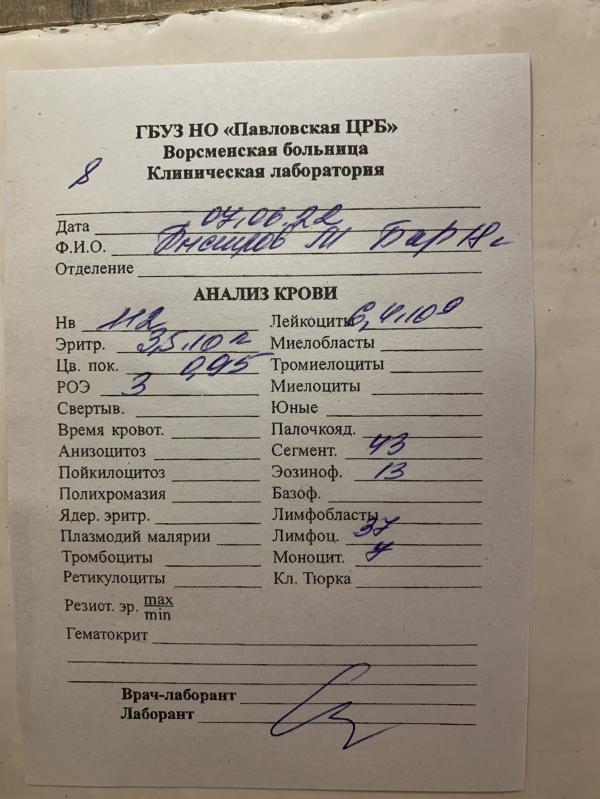 ГБУЗ НО «Павловская ЦРБ»
Ворсменская больница
Клиническая лаборатория
8
Дата 07.06.22
Ф.И.О.
Отделение
АНАЛИЗ КРОВИ
Нв 112 Лейкоциты 6,4.10⁹
Эритр. 3,5.10 Миелобласты
Цв. пок. 0,95 Тромиелоциты
РОЭ 3 Миелоциты
Свертыв. Юные
Время кровот. Палочкояд.
Анизоцитоз Сегмент. 43
Пойкилоцитоз Эозиноф. 13
Полихромазия Базоф.
Ядер. эритр. Лимфобласты
Плазмодий малярии Лимфоц. 37
Тромбоциты Моноцит.
Ретикулоциты Кл. Тюрка
Резист. эр. max
min
Гематокрит
Врач-лаборант
Лаборант